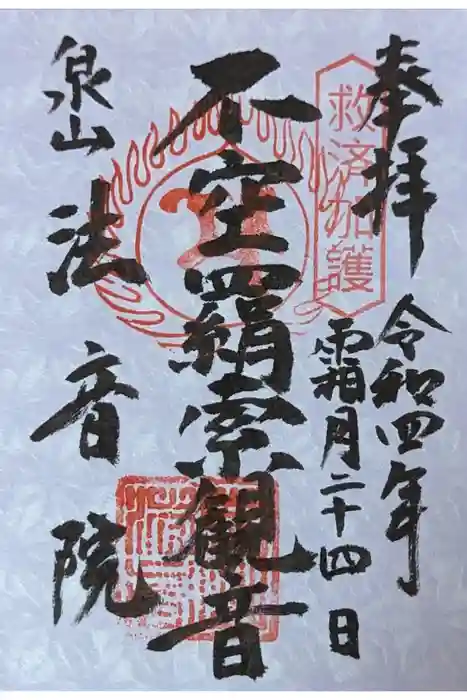 奉拝
救済加護
令和四年
霜月二十四日
不空羂索観音
泉山
法音院